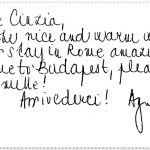 e Cinzia,
he nice and warm w
r stay in Rome amazi
e to Budapest, plea
mille!
Arrivederci! Agn